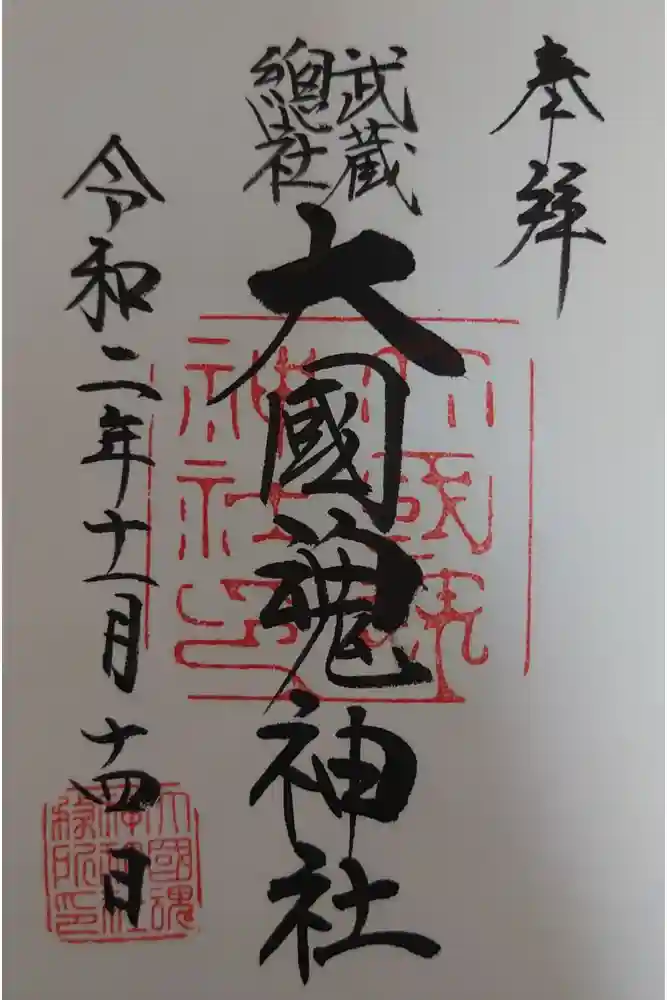 奉拝
武蔵
總社
大國魂神社
令和二年十一月十四日
大國魂
神社印
大國魂
神社社
務所印